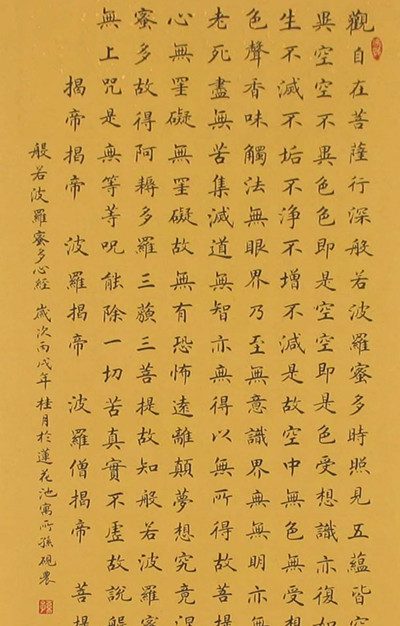 觀自在菩薩行深般若波羅蜜多時照見五蘊皆空
異空空不異色色即是空空即是色受想識亦復如
生不滅不垢不淨不增不減是故空中無色無受想
色聲香味觸法無眼界乃至無意識界無無明亦無
老死盡無苦集滅道無智亦無得以無所得故菩提
心無罣礙無罣礙故無有恐怖遠離顛夢想究竟涅
蜜多故得阿耨多羅三藐三菩提故知般若波羅蜜
無上咒是無等等咒能除一切苦真實不虛故說般
揭帝揭帝 波羅揭帝 波羅僧揭帝 菩提
般若波羅蜜多心經 歲次丙戌年桂月於蓮花池寓所孫硯農